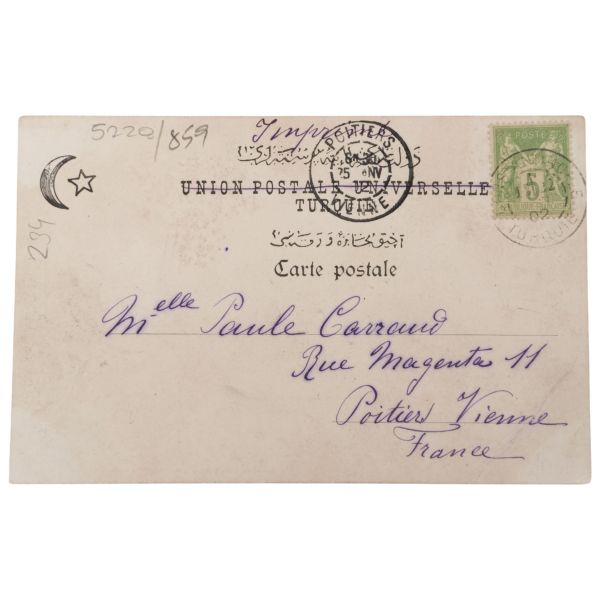 5220/859
Imprimé
UNION POSTALE UNIVERSELLE
TURQUIE
Carte postale
POITIERS
VIENNE
POSTE
5
02
234
Melle Paule Carraud
Rue Magenta 11
Poitiers Vienne
France